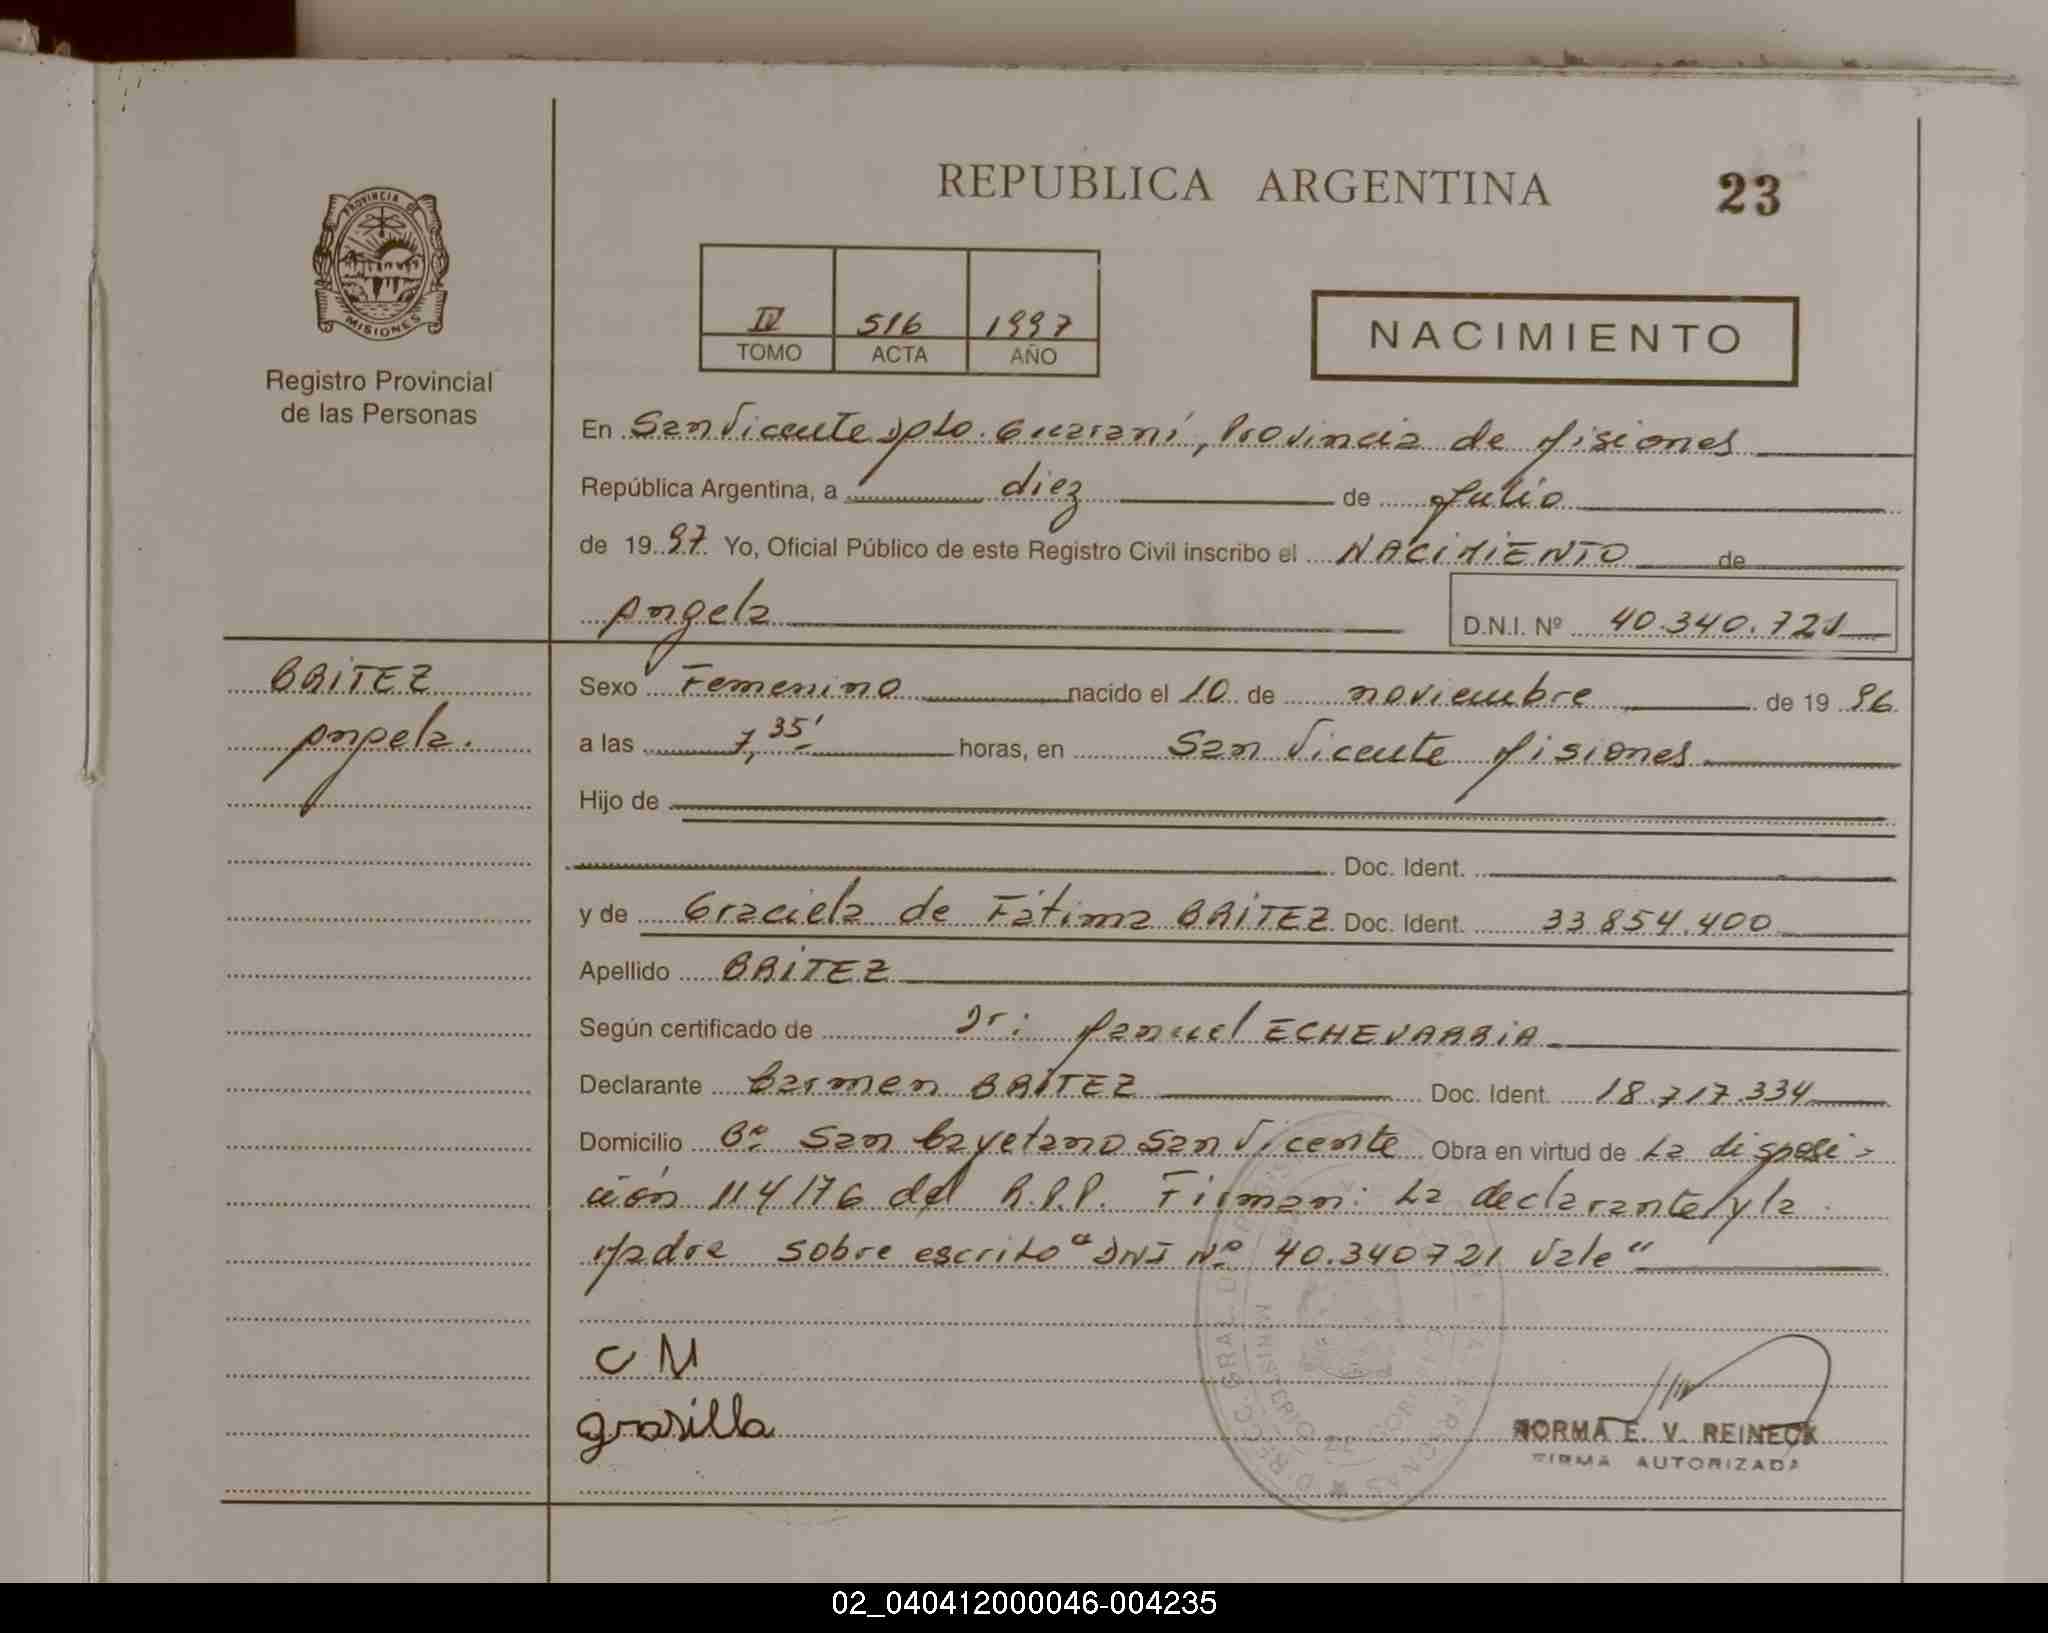 REPUBLICA ARGENTINA
23
PROVINCIA DE
MISIONES
Registro Provincial
de las Personas
IV 516 1997
TOMO ACTA AÑO
NACIMIENTO
En San Vicente Dpto. Guaraní, Provincia de Misiones
República Argentina, a diez de Julio
de 19 97 Yo, Oficial Público de este Registro Civil inscribo el NACIMIENTO de
Angela
D.N.I. Nº 40.340.721
BRITEZ
Angela.
Sexo Femenino nacido el 10 de noviembre de 19 96
a las 7,35' horas, en San Vicente Misiones
Hijo de
Doc. Ident.
y de Graciela de Fátima BRITEZ Doc. Ident. 33.854.400
Apellido BRITEZ
Según certificado de Dr: Manuel ECHEVARRIA
Declarante Carmen BRITEZ Doc. Ident. 18.717.334
Domicilio Bº San Cayetano San Vicente Obra en virtud de La disposi-
ción 114/76 del R.P.P. Firman: La declarante y la
Madre sobre escrito "DNI Nº 40.340721 Vale"
C M
NORMA E. V. REINECK
FIRMA AUTORIZADA
02_040412000046-004235